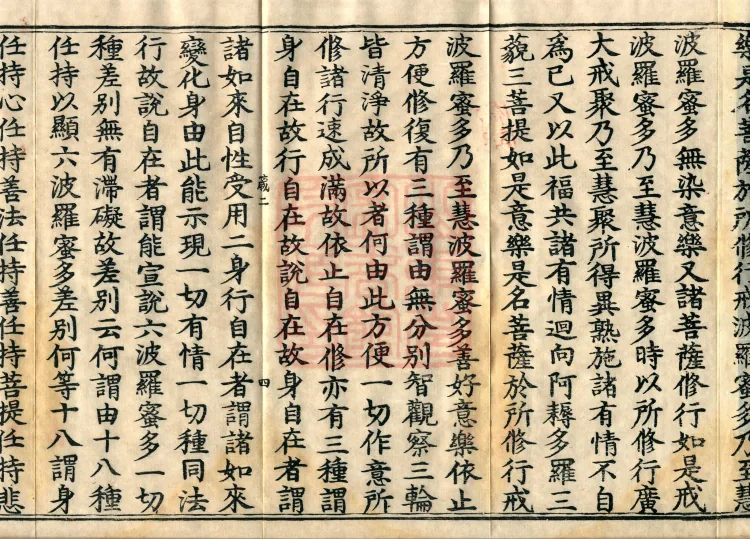 樂大乘菩薩於所修行戒波羅蜜多乃至慧
波羅蜜多無染意樂又諸菩薩修行如是戒
波羅蜜多乃至慧波羅蜜多時以所修行廣
大戒聚乃至慧聚所得異熟施諸有情不自
爲已又以此福共諸有情迴向阿耨多羅三
藐三菩提如是意樂是名菩薩於所修行戒
波羅蜜多乃至慧波羅蜜多善好意樂依止
方便修復有三種謂由無分別智觀察三輪
皆清淨故所以者何由此方便一切作意所
修諸行速成滿故依止自在修亦有三種謂
身自在故行自在故說自在故身自在者謂
藏二 四
諸如來自性受用二身行自在者謂諸如來
變化身由此能示現一切有情一切種同法
行故說自在者謂能宣說六波羅蜜多一切
種差別無有滯礙故差別云何謂由十八種
任持以顯六波羅蜜多差別何等十八謂身
任持心任持善法任持善任持菩提任持悲